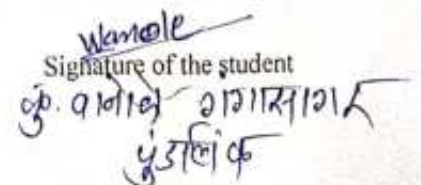 Wanole
Signature of the student
कु. वानोळे गंगासागर
पुंडलिक